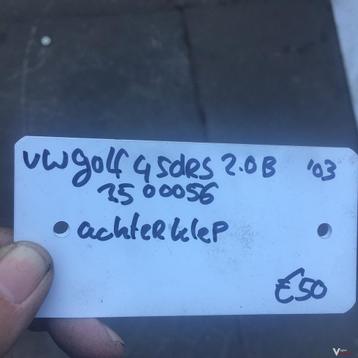 vw golf 4 5DRS 2.0B '03
3500056
achterklep
€50